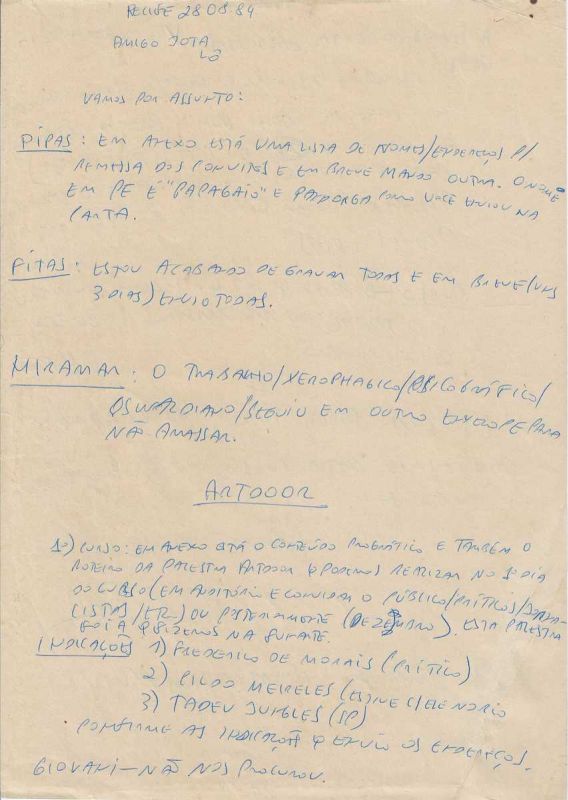 RECIFE 28 08 84
AMIGO JOTA
LÔ
VAMOS POR ASSUNTO:
PIPAS: EM ANEXO ESTÁ UMA LISTA DE NOMES/ENDEREÇOS P/
REMESSA DOS CONVITES E EM BREVE MANDO OUTRA. O NOME
EM PE É "PAPAGAIO" E PANDORGA COMO VOCÊ ENVIOU NA
CARTA.
FITAS: ESTOU ACABANDO DE GRAVAR TODAS E EM BREVE (UNS
3 DIAS) ENVIO TODAS.
MIRAMAR: O TRABALHO/XEROPHAGICO/
OSWALDIANO/SEGUIU EM OUTRO ENVELOPE PARA
NÃO AMASSAR.
ARTDOOR
1º) CURSO: EM ANEXO ESTÁ O CONTEÚDO PROGMÁTICO E TAMBÉM O
ROTEIRO DA PALESTRA ARTDOOR Q PODEMOS REALIZAR NO 1º DIA
DO CURSO (EM AUDITÓRIO E CONVIDAR O PÚBLICO/CRÍTICOS/JORNA-
LISTAS/ETC) OU POSTERIORMENTE (DEZEMBRO). ESTA PALESTRA
FOI A Q FIZEMOS NA
INDICAÇÕES 1) FREDERICO DE MORAIS (CRÍTICO)
2) CILDO MEIRELES (ESTIVE C/ELE NO RIO
3) TADEU JUNGLES (SP)
CONFIRME AS INDICAÇÕES Q ENVIO OS ENDEREÇOS.
GIOVANI — NÃO NOS PROCUROU.